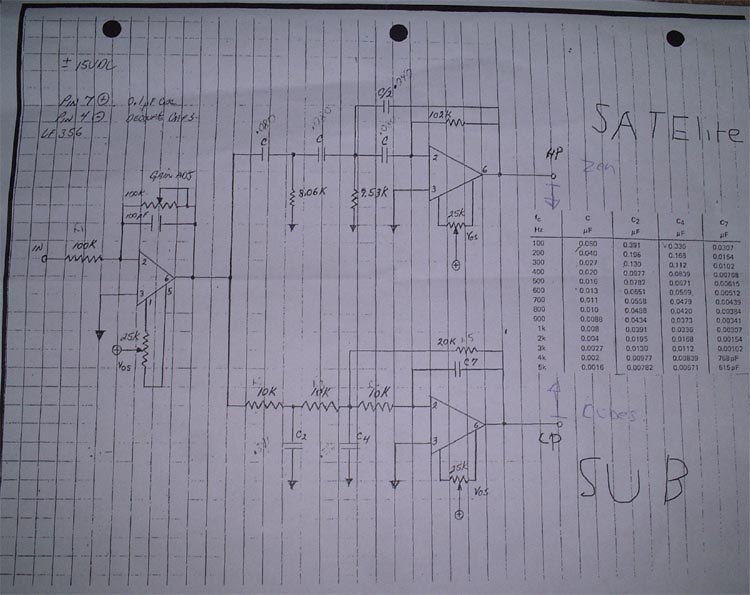 ± 15VDC
Pin 7 ⊕ 0.1μF Cer
Pin 4 ⊖
LF 356
Gain ADJ
100K
100pF
IN
100K
2
3
6
1
5
25K
Vos
.080
C
C
C/2
.040
C
8.06K
9.53K
102K
2
3
6
25K
Vos
HP
SATElite
Zen
fc C C2 C4 C7
Hz μF μF μF μF
100 0.080 0.391 0.336 0.0307
200 0.040 0.196 0.168 0.0154
300 0.027 0.130 0.112 0.0102
400 0.020 0.0977 0.0839 0.00768
500 0.016 0.0782 0.0671 0.00615
600 0.013 0.0651 0.0559 0.00512
700 0.011 0.0558 0.0479 0.00439
800 0.010 0.0488 0.0420 0.00384
900 0.0088 0.0434 0.0373 0.00341
1k 0.008 0.0391 0.0336 0.00307
2k 0.004 0.0195 0.0168 0.00154
3k 0.0027 0.0130 0.0112 0.00102
4k 0.002 0.00977 0.00839 768pF
5k 0.0016 0.00782 0.00671 615pF
20K
C7
10K
10K
10K
C2
C4
2
3
6
25K
Vos
LP
Cubes
SUB